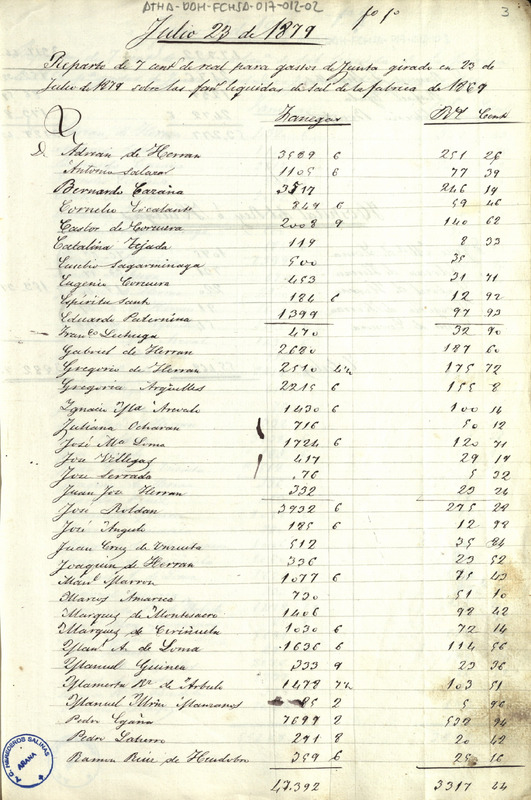 ATHA-DDH-FCHSA-017-012-02
fo fo
3
Julio 23 de 1879
Reparto de 7 cent.s de real para gastos de Junta girado en 23 de
Julio de 1879 sobre las fan.s liquidas de sal de la fabrica de 1869
Fanegas Rs Cents
D. Adrian de Herran 3589 6 251 26
Antonio Salazar 1105 6 77 39
Bernardo 3517 246 19
Cornelio Escalante 849 6 59 46
Castor de Corcuera 2008 9 140 62
Catalina Tejada 119 8 33
Eusebio Sagarminaga 500 35
Eugenio Corcuera 453 31 71
Espiritu Santo 184 6 12 92
Eduardo Paternina 1399 97 93
Fran.co Lechuga 470 32 90
Gabriel de Herran 2680 187 60
Gregorio de Herran 2510 4½ 175 72
Gregoria Argüelles 2215 6 155 8
Ignacio Arevalo 1430 6 100 14
Juliana Ochavan 716 50 12
José Ma Loma 1724 6 120 71
Jose Villegas 417 29 19
Jose Serrada 76 5 32
Juan Jose Herran 332 23 24
José Roldan 3932 6 275 28
José Angulo 185 6 12 98
Juan Cruz de Unzueta 512 35 84
Joaquin de Herran 336 23 52
Man.l Marron 1077 6 75 43
Marcos Amarica 730 51 10
Marquez de Montesacro 1406 98 42
Marquez de Ciriñuela 1030 6 72 14
Man.l A. de Loma 1636 6 114 56
Manuel Guinea 333 9 23 36
Mamerta de 1478 7½ 103 51
Manuel Manzanos 85 2 5 96
Pedro Egaña 7699 2 538 94
Pedro 291 8 20 42
Ramon Ruiz de 359 6 25 16
47.392 3317 44
A.C. HEREDEROS SALINAS
AÑANA